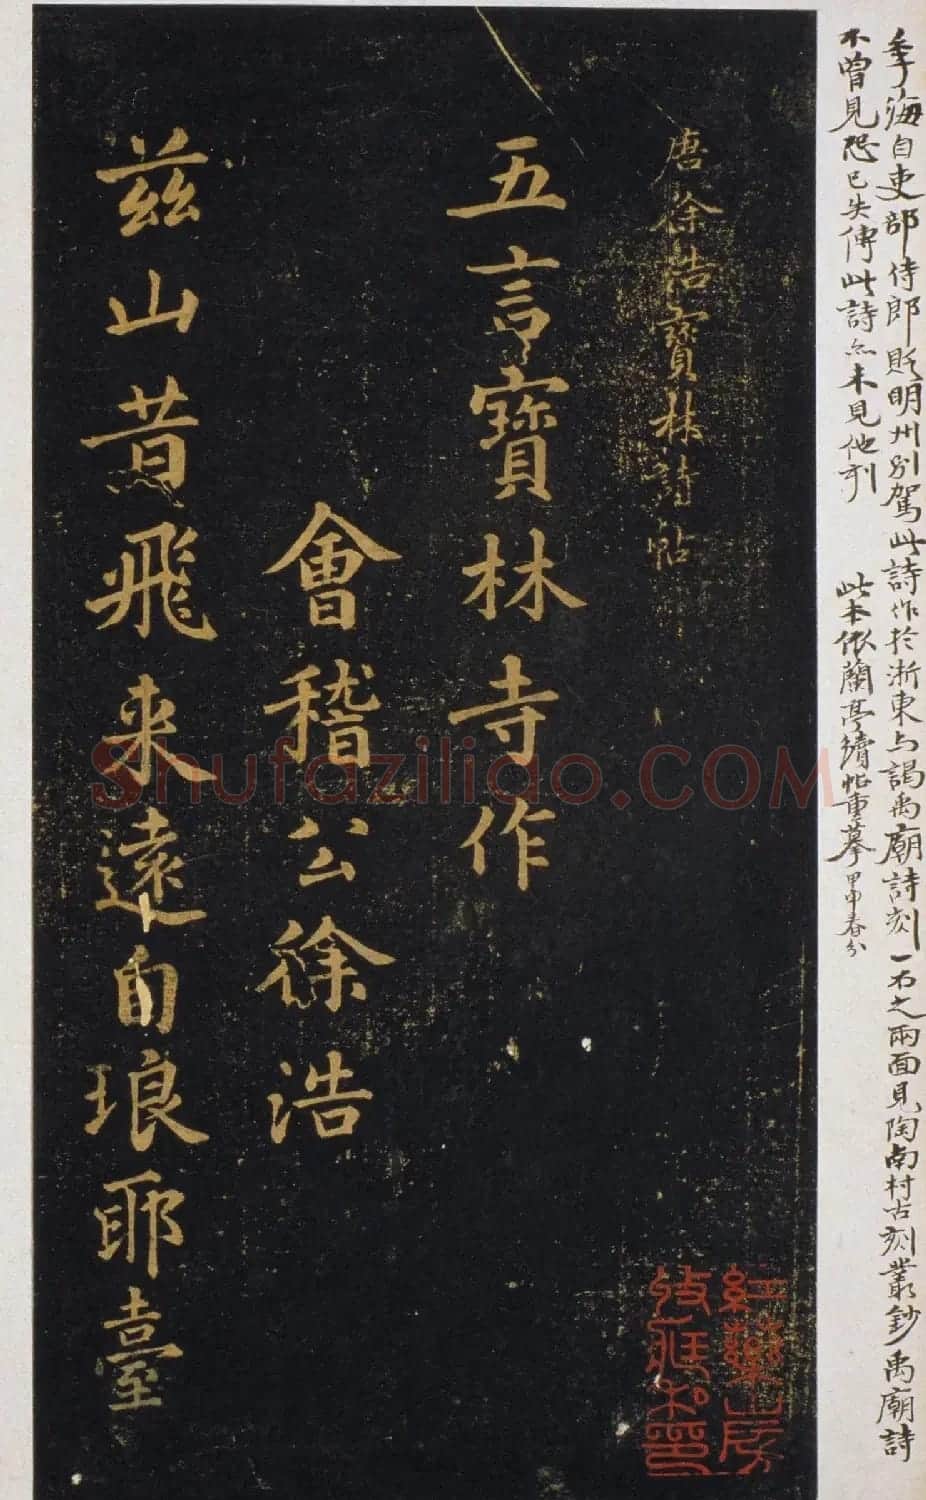 季海自吏部侍郎貶明州別駕此詩作於浙東与謁禹廟詩刻一石之兩面見陶南村古刻叢鈔禹廟詩
不曾見恐已失傳此詩亦未見他刻
此本依蘭亭續帖重摹甲申春分
唐徐浩寶林詩帖
五言寶林寺作
會稽公徐浩
茲山昔飛来遠自琅耶臺
紅藥山房
Shufazilido.COM